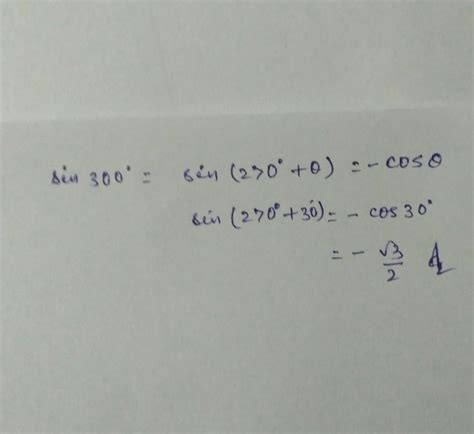 sin 300° = sin (270° + θ) = - cos θ
sin (270° + 30) = - cos 30°
= - √3/2